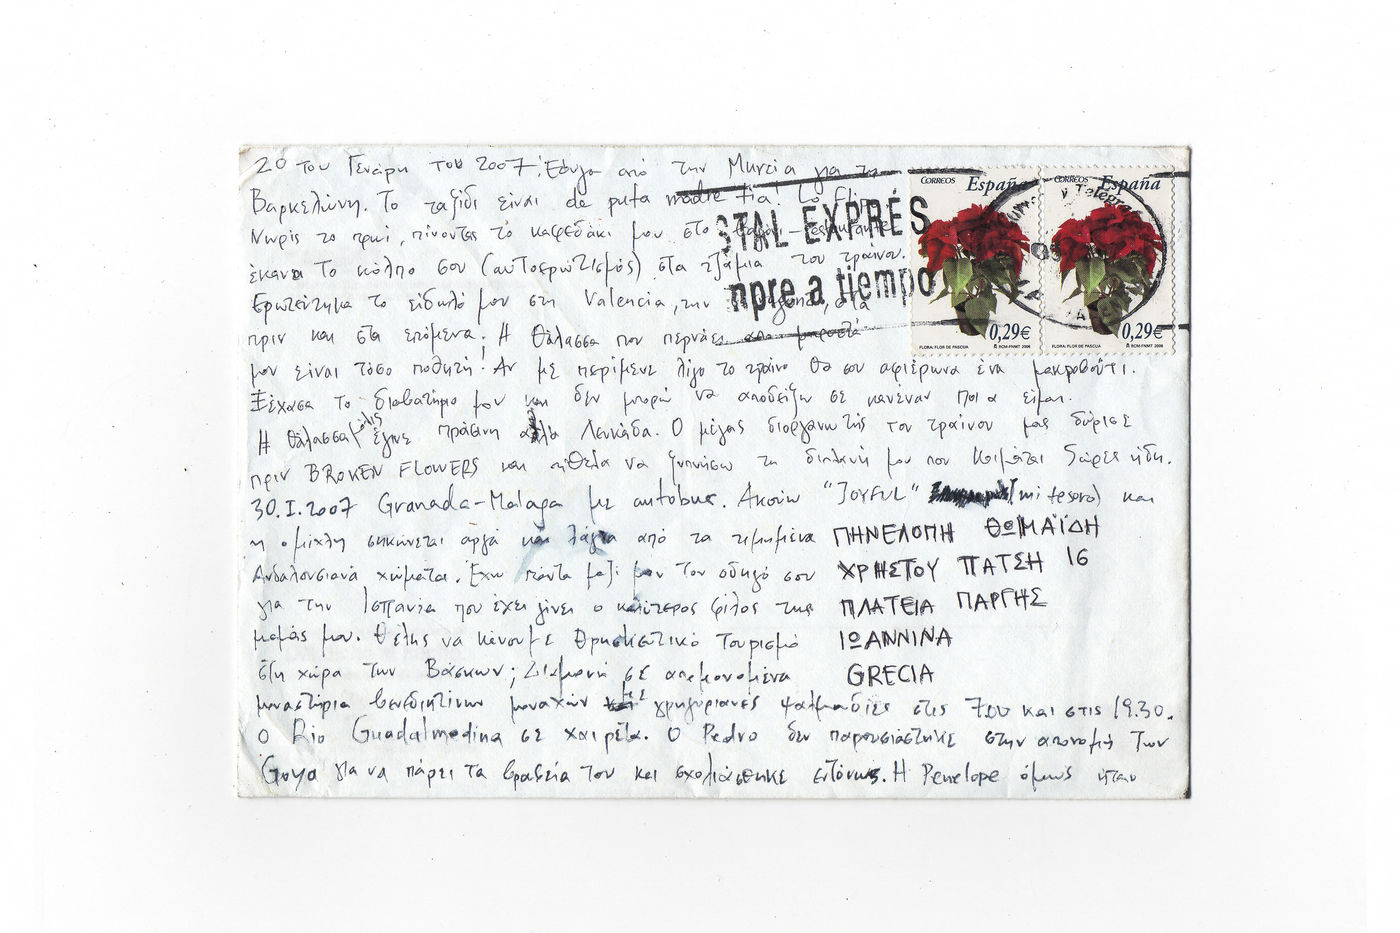 20 του Γενάρη του 2007. Έφυγα από την Murcia για τη
Βαρκελώνη. Το ταξίδι είναι de puta madre tía! Το
Νωρίς το πρωί, πίνοντας το καφεδάκι μου στο
έκανα το κόλπο σου (αυτοερωτισμός) στα τζάμια του τραίνου.
Ερωτεύτηκα το είδωλό μου στη Valencia, την
πριν και στα επόμενα. Η θάλασσα που περνάει από μπροστά
μου είναι τόσο ποθητή. Αν με περίμενε λίγο το τραίνο θα σου αφιέρωνα ένα μακροβούτι.
Ξέχασα το διαβατήριο μου και δεν μπορώ να αποδείξω σε κανέναν ποια είμαι.
Η θάλασσα μόλις έγινε πράσινη αλά Λευκάδα. Ο μέγας διοργανωτής του τραίνου μας δώρισε
πριν BROKEN FLOWERS και ήθελα να ξυπνήσω τη διπλανή μου που κοιμάται 5 ώρες ήδη.
30.I.2007 Granada-Malaga με autobus. Ακούω "JOYFUL" (mi tesoro) και
η ομίχλη σηκώνεται αργά και λάγνα από τα τιμημένα
Ανδαλουσιανά χώματα. Έχω πάντα μαζί μου τον οδηγό σου
για την Ισπανία που έχει γίνει ο καλύτερος φίλος της
μαμάς μου. Θέλεις να κάνουμε Θρησκευτικό Τουρισμό
στη χώρα των Βάσκων; Διαμονή σε απομονωμένα
μοναστήρια βενεδικτίνων μοναχών με γρηγοριανές ψαλμωδίες στις 7.00 και στις 19.30.
Ο Rio Guadalmedina σε χαιρετά. Ο Pedro δεν παρουσιάστηκε στην απονομή των
Goya για να πάρει τα βραβεία του και σχολιάστηκε εντόνως. Η Penelope όμως ήταν
ΠΗΝΕΛΟΠΗ ΘΩΜΑΪΔΗ
ΧΡΗΣΤΟΥ ΠΑΤΣΗ 16
ΠΛΑΤΕΙΑ ΠΑΡΓΗΣ
ΙΩΑΝΝΙΝΑ
GRECIA
STAL EXPRÉS
npre a tiempo
CORREOS España
0,29€
FLORA: FLOR DE PASCUA RCM-FNMT 2006
CORREOS España
0,29€
FLORA: FLOR DE PASCUA RCM-FNMT 2006